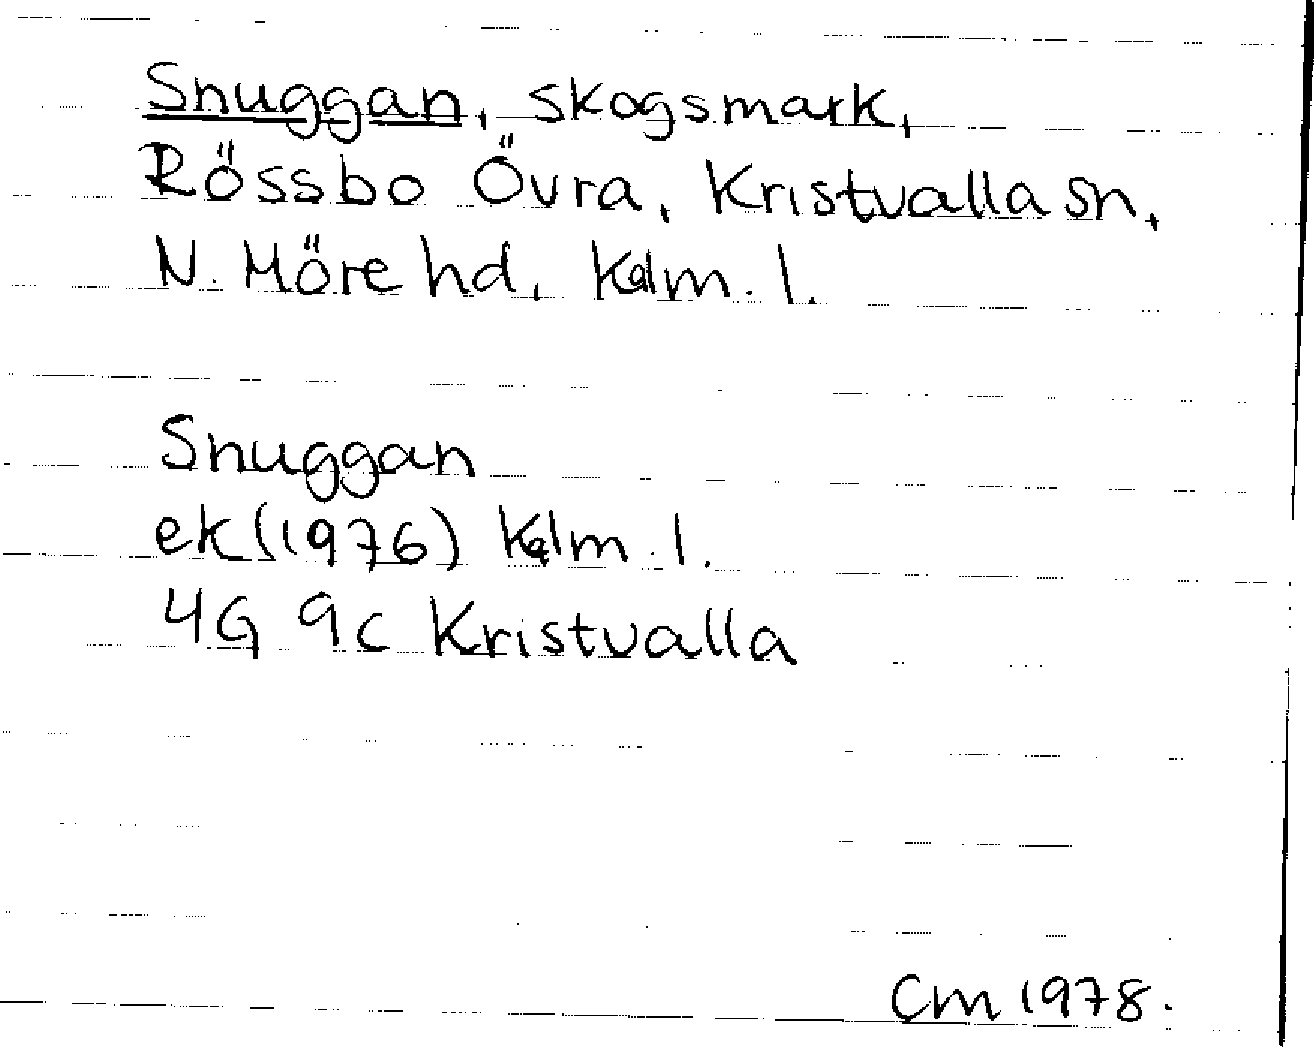 Snuggan, skogsmark,
Rössbo Övra, Kristvalla sn,
N. Möre hd, Kalm. l.
Snuggan
ek (1976) Kalm. l.
4G 9c Kristvalla
Cm 1978.